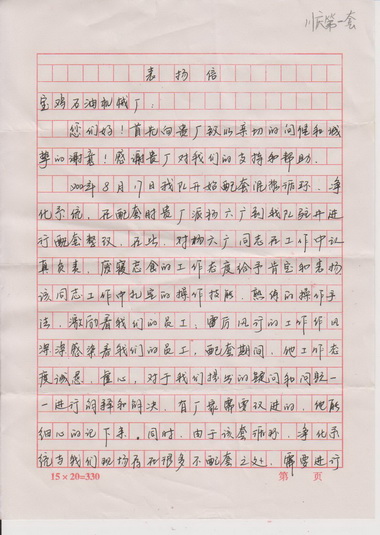 川庆第一套
表扬信
宝鸡石油机械厂:
您们好!首先向贵厂致以亲切的问候和诚
挚的谢意!感谢贵厂对我们的支持和帮助.
2008年8月17日我队开始配套泥浆循环、净
化系统,在配套时贵厂派杨六广到我队驻井进
行配套整改,在此,对杨六广同志在工作中认
真负责,废寝忘食的工作态度给予肯定和表扬
该同志工作中扎实的操作技能,熟练的操作手
法,激励着我们的员工,雷厉风行的工作作风
深深感染着我们的员工,配套期间,他工作态
度诚恳、虚心,对于我们提出的疑问和问题一
一进行解释和解决,有厂家需要改进的,他能
细心的记下来.同时,由于该套循环、净化系
统与我们现场存在很多不配套之处,需要进行
15×20=330
第 页